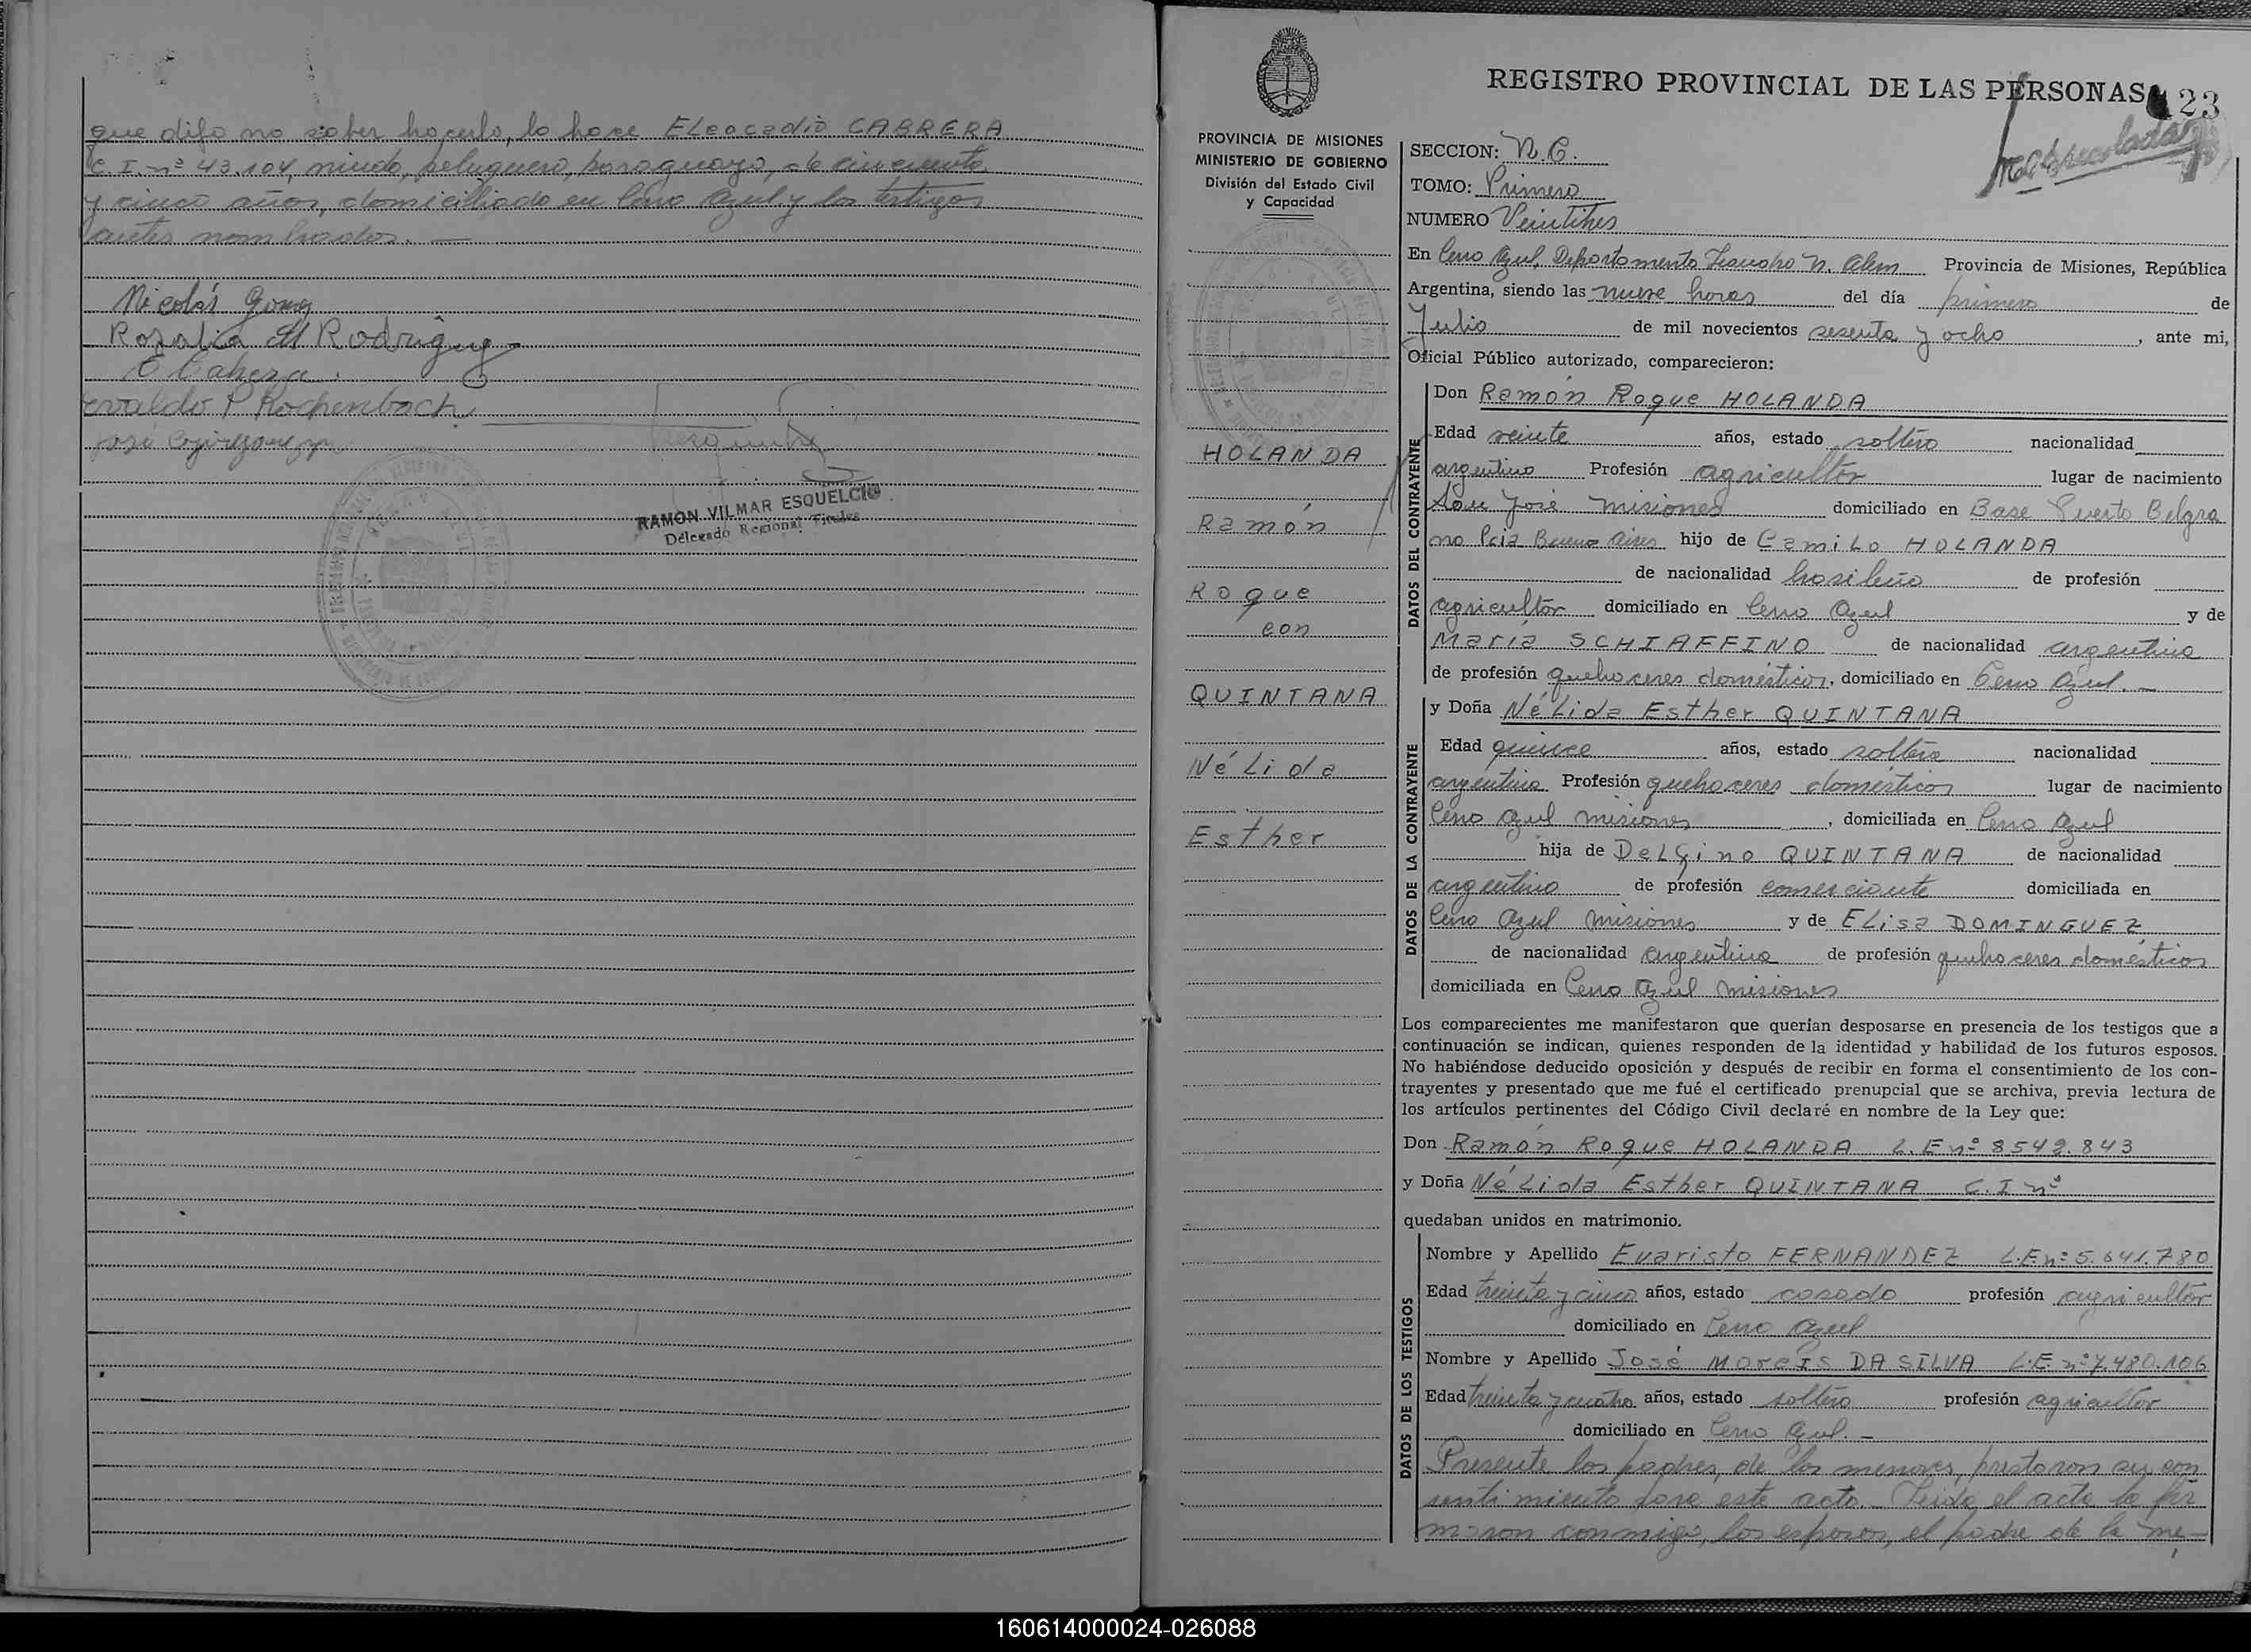 que dijo no saber hacerlo, lo hace Eleocadio CABRERA
C. I. nº 43.104, viudo, peluquero, paraguayo, de cincuenta
y cinco años, domiciliado en Cerro Azul y los testigos
antes nombrados. —
Nicolás Gomez
Rosalia M Rodriguez
E Cabrera
evaldo P Rochembach
RAMON VILMAR ESQUELCIO
Delegado Regional Titular
REGISTRO PROVINCIAL DE LAS PERSONAS
23
PROVINCIA DE MISIONES
MINISTERIO DE GOBIERNO
División del Estado Civil
y Capacidad
HOLANDA
Ramón
Roque
con
QUINTANA
Nélida
Esther
SECCION: N.C.
TOMO: Primero
NUMERO Veintitres
En Cerro Azul, Departamento Leandro N. Alem Provincia de Misiones, República
Argentina, siendo las nueve horas del día primero de
Julio de mil novecientos sesenta y ocho, ante mi,
Oficial Público autorizado, comparecieron:
DATOS DEL CONTRAYENTE
Don Ramón Roque HOLANDA
Edad veinte años, estado soltero nacionalidad
argentino Profesión agricultor lugar de nacimiento
San José Misiones domiciliado en Base Puerto Belgra
no Pcia Buenos Aires hijo de Camilo HOLANDA
de nacionalidad brasileño de profesión
agricultor domiciliado en Cerro Azul y de
María SCHIAFFINO de nacionalidad argentina
de profesión quehaceres domésticos, domiciliado en Cerro Azul. —
DATOS DE LA CONTRAYENTE
y Doña Nélida Esther QUINTANA
Edad quince años, estado soltera nacionalidad
argentina Profesión quehaceres domésticos lugar de nacimiento
Cerro Azul Misiones, domiciliada en Cerro Azul
hija de Delfino QUINTANA de nacionalidad
argentino de profesión comerciante domiciliada en
Cerro Azul Misiones y de Elisa DOMINGUEZ
de nacionalidad argentina de profesión quehaceres domésticos
domiciliada en Cerro Azul Misiones
Los comparecientes me manifestaron que querían desposarse en presencia de los testigos que a
continuación se indican, quienes responden de la identidad y habilidad de los futuros esposos.
No habiéndose deducido oposición y después de recibir en forma el consentimiento de los con-
trayentes y presentado que me fué el certificado prenupcial que se archiva, previa lectura de
los artículos pertinentes del Código Civil declaré en nombre de la Ley que:
Don Ramón Roque HOLANDA L.E nº 8542.843
y Doña Nélida Esther QUINTANA C.I nº
quedaban unidos en matrimonio.
DATOS DE LOS TESTIGOS
Nombre y Apellido Evaristo FERNANDEZ L.E nº 5.641.780
Edad treinta y cinco años, estado casado profesión agricultor
domiciliado en Cerro Azul
Nombre y Apellido José Moreis DA SILVA L.E nº 7.480.106
Edad treinta y cuatro años, estado soltero profesión agricultor
domiciliado en Cerro Azul. —
Presente los padres, de los menores, prestaron su con
sentimiento para este acto. — Leída el acta la fir
maron conmigo, los esposos, el padre de la me-
160614000024-026088